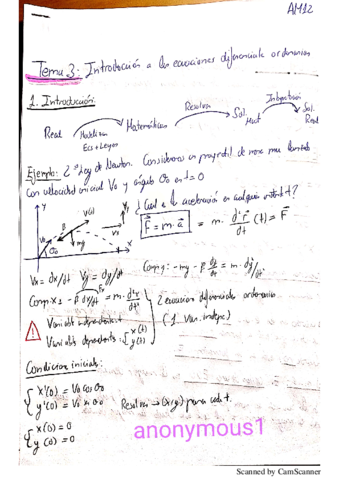 AM12
Tema 3: Introducción a las ecuaciones diferenciales ordinarias
1. Introducción:
Real Modelizar Ecs + Leyes Matemáticas Resolver Sol. Mat Interpretación Sol. Real
Ejemplo: 2ª Ley de Newton. Consideramos un proyectil de masa m lanzado
con velocidad inicial V₀ y ángulo θ₀ en t=0
¿Cuál es la aceleración en cualquier instante t?
F = m·a = m · d²r/dt² (t) = F
Vx = dx/dt Vy = dy/dt
Comp y: -mg - β dy/dt = m · d²y/dt²
Comp x: -β dx/dt = m · d²x/dt²
2 ecuaciones diferenciales ordinarias
(1 var. indep)
Variable independiente: t
Variables dependientes: x(t) y(t)
Condiciones iniciales:
x'(0) = V₀ cos θ₀
y'(0) = V₀ sen θ₀
Resolver → (x,y) para cada t.
x(0) = 0
y(0) = 0
anonymous1
Scanned by CamScanner